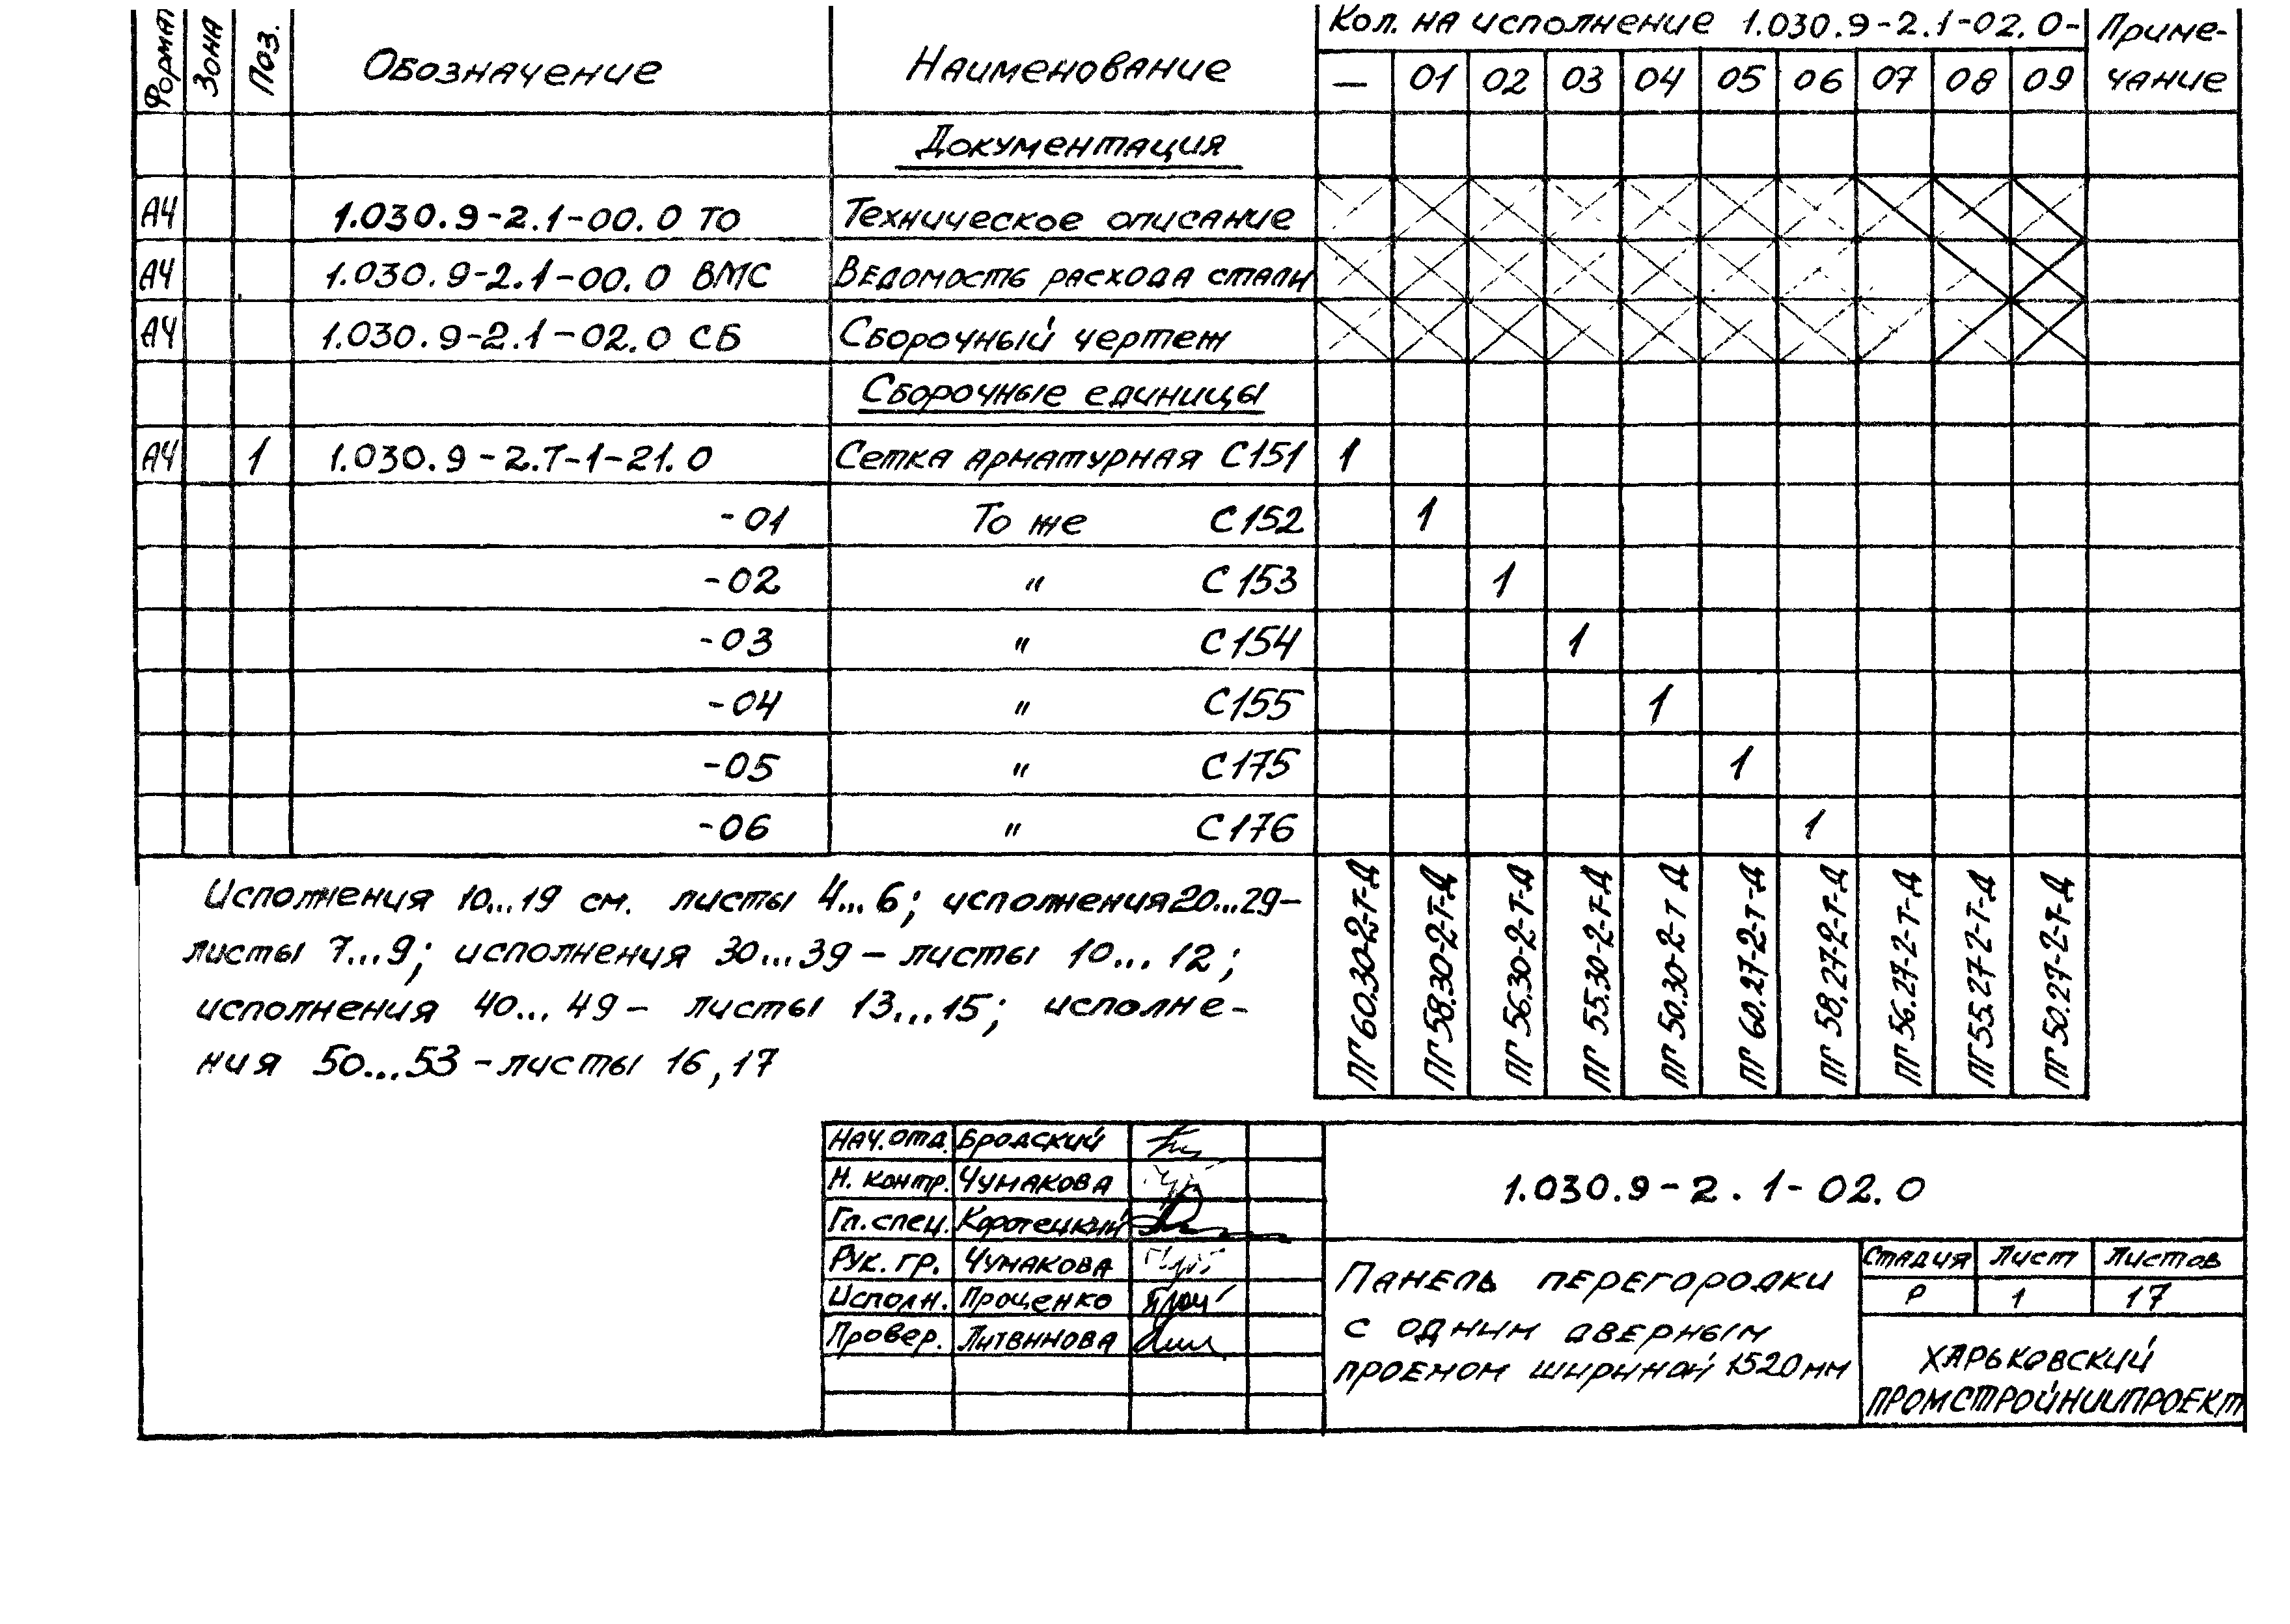 Формат Зона Поз. Обозначение Наименование Кол. на исполнение 1.030.9-2.1-02.0- Приме-
— 01 02 03 04 05 06 07 08 09 чание
Документация
А4 1.030.9-2.1-00.0 ТО Техническое описание
А4 1.030.9-2.1-00.0 ВМС Ведомость расхода стали
А4 1.030.9-2.1-02.0 СБ Сборочный чертеж
Сборочные единицы
А4 1 1.030.9-2.Т-1-21.0 Сетка арматурная С151 1
-01 То же С152 1
-02 " С153 1
-03 " С154 1
-04 " С155 1
-05 " С175 1
-06 " С176 1
ПГ 60.30-2-Т-Д
ПГ 58.30-2-Т-Д
ПГ 56.30-2-Т-Д
ПГ 55.30-2-Т-Д
ПГ 50.30-2-Т Д
ПГ 60.27-2-Т-Д
ПГ 58.27-2-Т-Д
ПГ 56.27-2-Т-Д
ПГ 55.27-2-Т-Д
ПГ 50.27-2-Т-Д
Исполнения 10...19 см. листы 4...6; исполнения 20...29-
листы 7...9; исполнения 30...39 - листы 10...12;
исполнения 40...49 - листы 13...15; исполне-
ния 50...53 - листы 16,17
Нач.отд. Бродский
Н. контр. Чумакова
Гл.спец. Коротецкий
Рук. гр. Чумакова
Исполн. Проценко
Провер. Литвинова
1.030.9-2.1-02.0
Панель перегородки
с одним дверным
проемом шириной 1520мм
Стадия Лист Листов
Р 1 17
ХАРЬКОВСКИЙ
ПРОМСТРОЙНИИПРОЕКТ